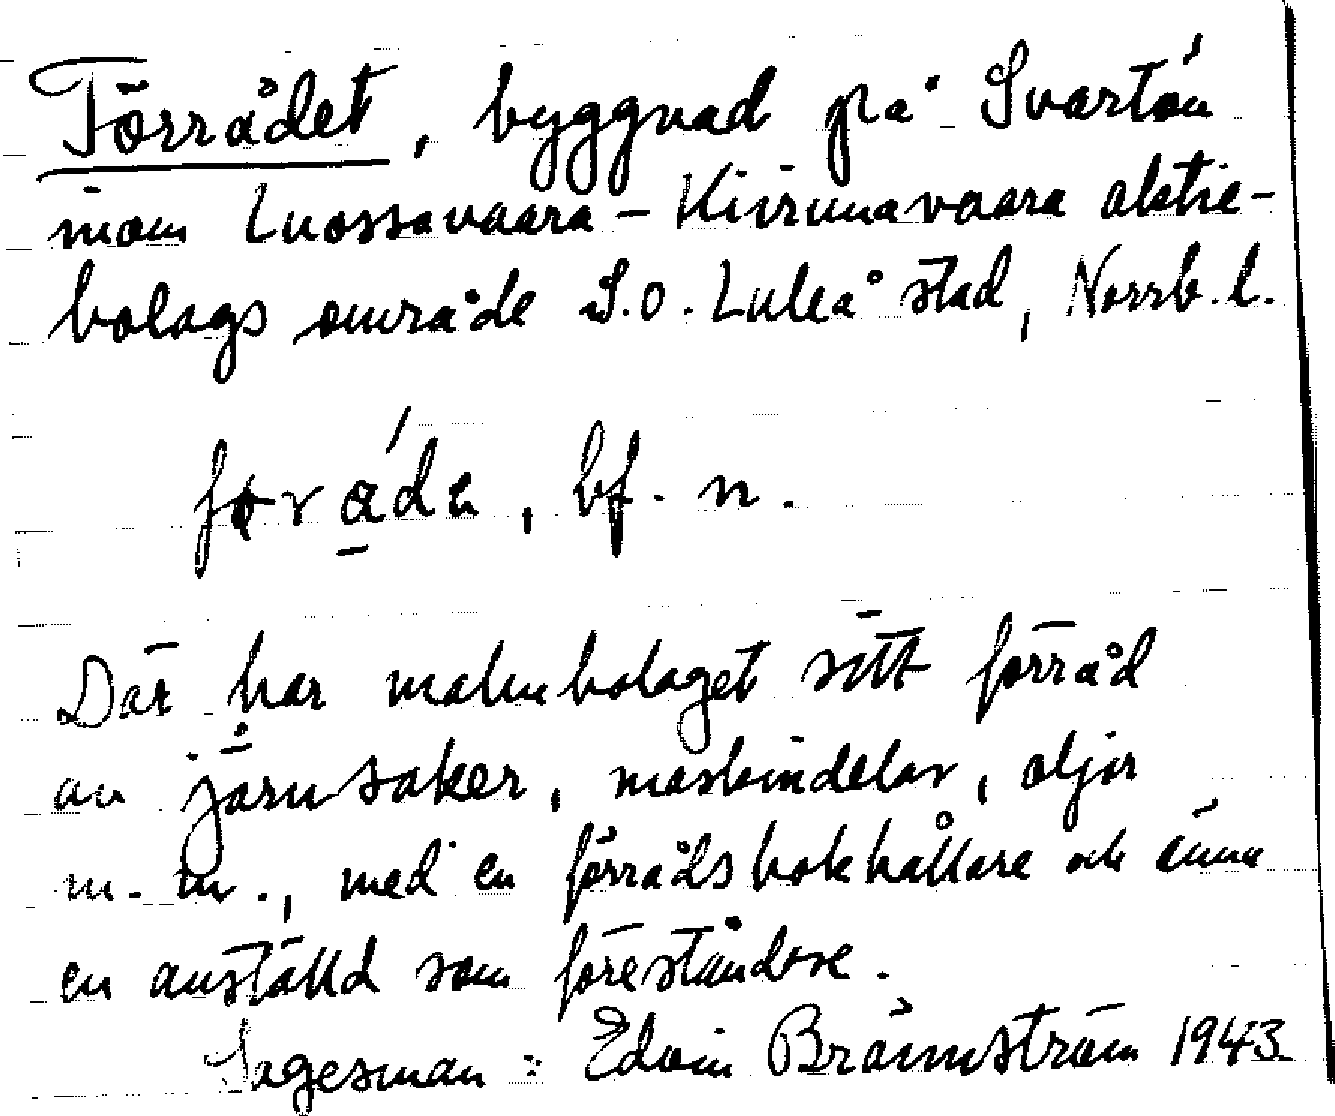 Förrådet, byggnad på Svartön
inom Luossavaara-Kiirunavaara aktie-
bolags område S.O. Luleå stad, Norrb. l.
bf. n.
Där har malmbolaget sitt förråd
av järnsaker, maskindelar, oljor
m. m., med en förrådsbokhållare och ännu
en anställd som föreståndare.
Sagesman: Edvin Brännström 1943